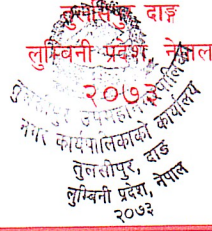 तुलसीपुर, दाङ
लुम्बिनी प्रदेश, नेपाल
२०७३
तुलसीपुर उपमहानगरपालिका
नगर कार्यपालिकाको कार्यालय
तुलसीपुर, दाङ
लुम्बिनी प्रदेश, नेपाल
२०७३